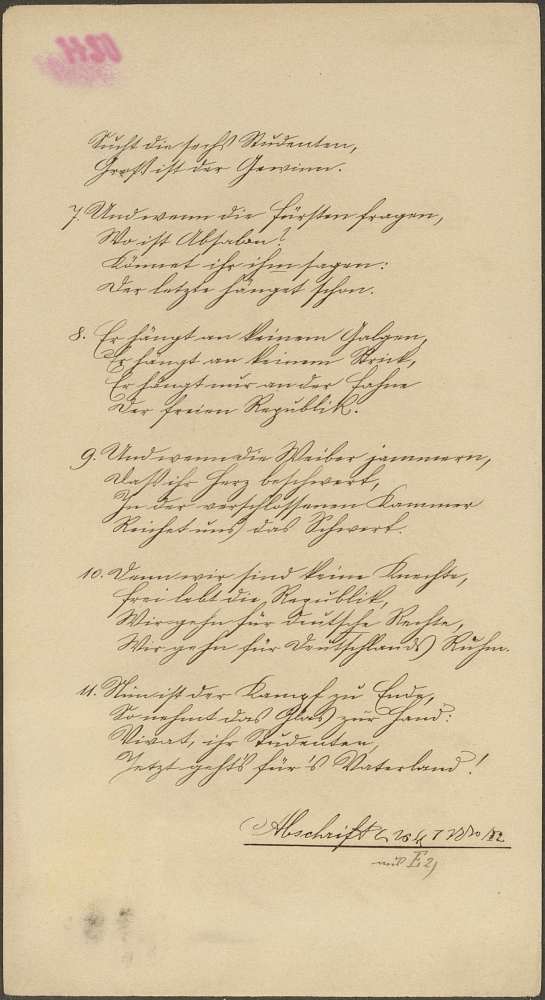 Sucht die sechs Studenten,
Groß ist der Gewinn.
7. Und wenn die Fürsten fragen,
Wo ist Absalon?
Könnet ihr ihm sagen:
Der letzte hänget schon.
8. Er hängt an keinem Galgen,
Er hängt an keinem Strick,
Er hängt nur an der Fahne
Der freien Republik.
9. Und wenn die Weiber jammern,
Daß ihr Herz beschwert,
In der verschlossenen Kammer
Reichet uns das Schwert.
10. Denn wir sind keine Knechte,
Frei lebt die Republik,
Wir gehn für deutsche Rechte,
Wir gehn für Deutschlands Ruhm.
11. Nun ist der Kampf zu Ende,
So nehmt das Glas zur Hand:
Vivat, ihr Studenten,
Jetzt geht's für's Vaterland!
Abschrift